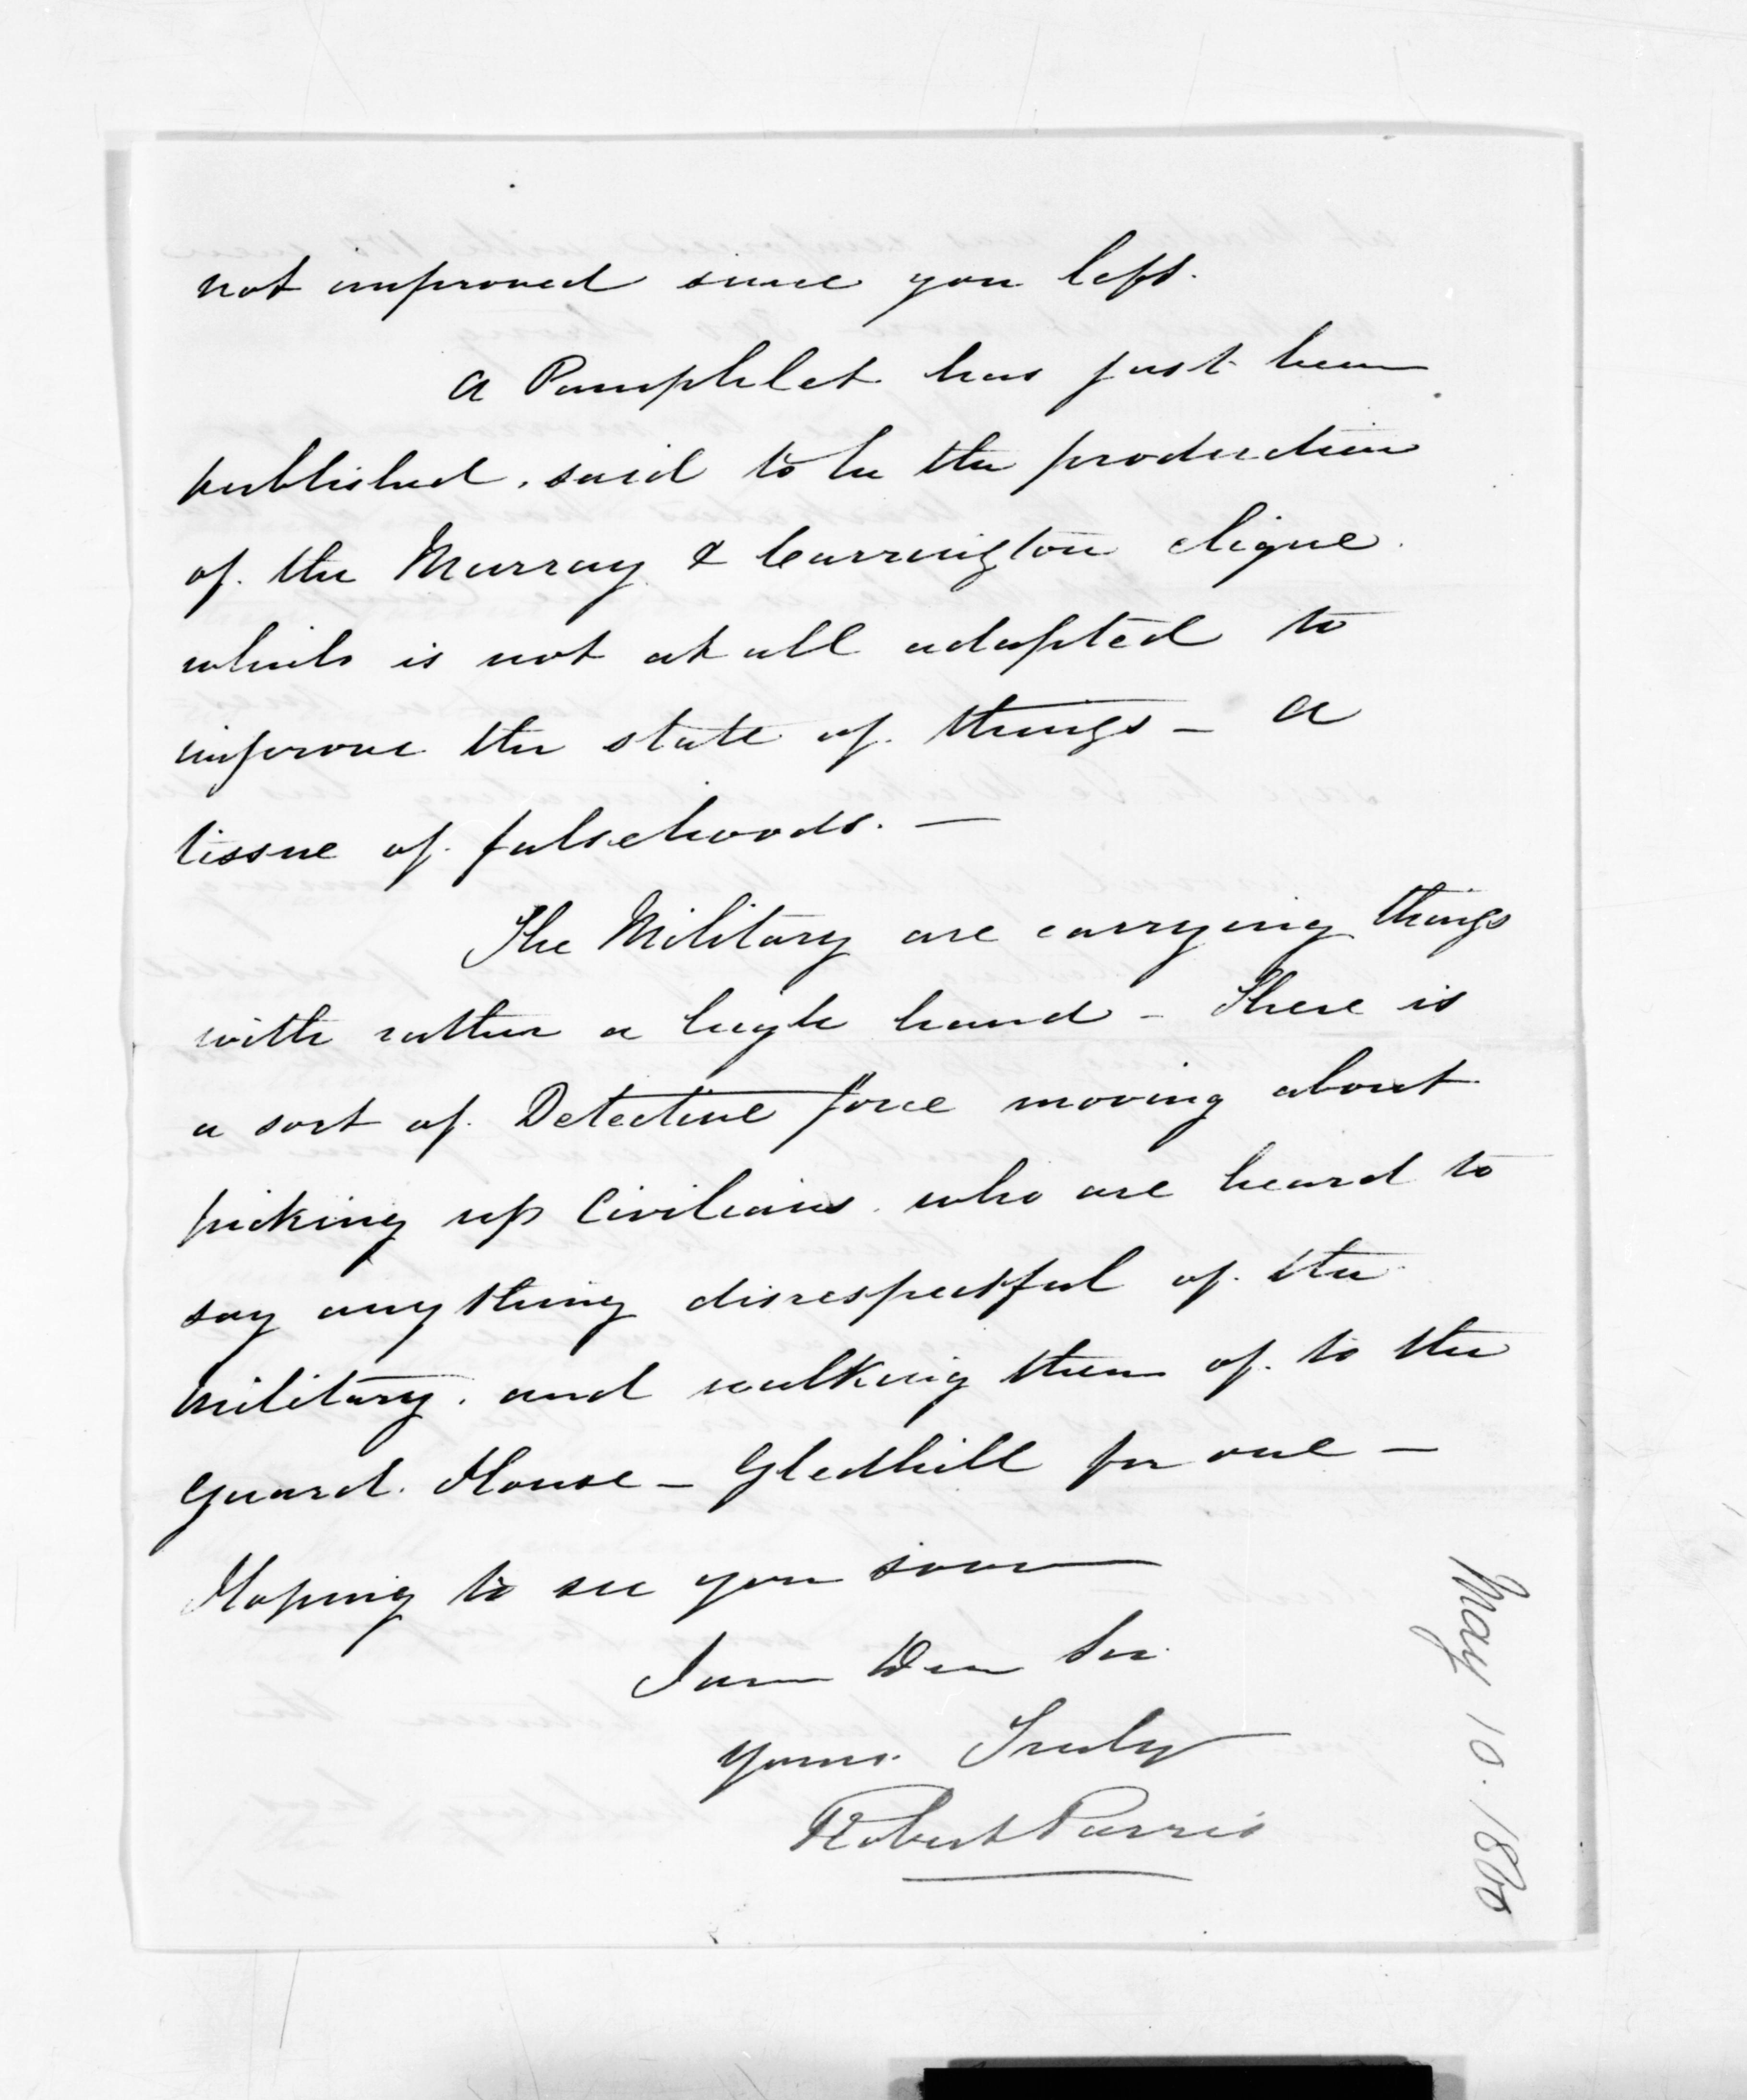 not improved since you left.
A Pamphlet has just been
published, said to be the production
of the Murray & Carrington clique.
which is not at all adapted to
improve the state of things – a
tissue of falsehoods. —
The Military are carrying things
with rather a high hand – There is
a sort of Detective force moving about
picking up Civilians who are heard to
say any thing disrespectful of the
military, and walking them of to the
Guard House – Gledhill for one –
Hoping to see you soon
I am Dear Sir
Yours Truly
Robert Parris
May 10. 1860